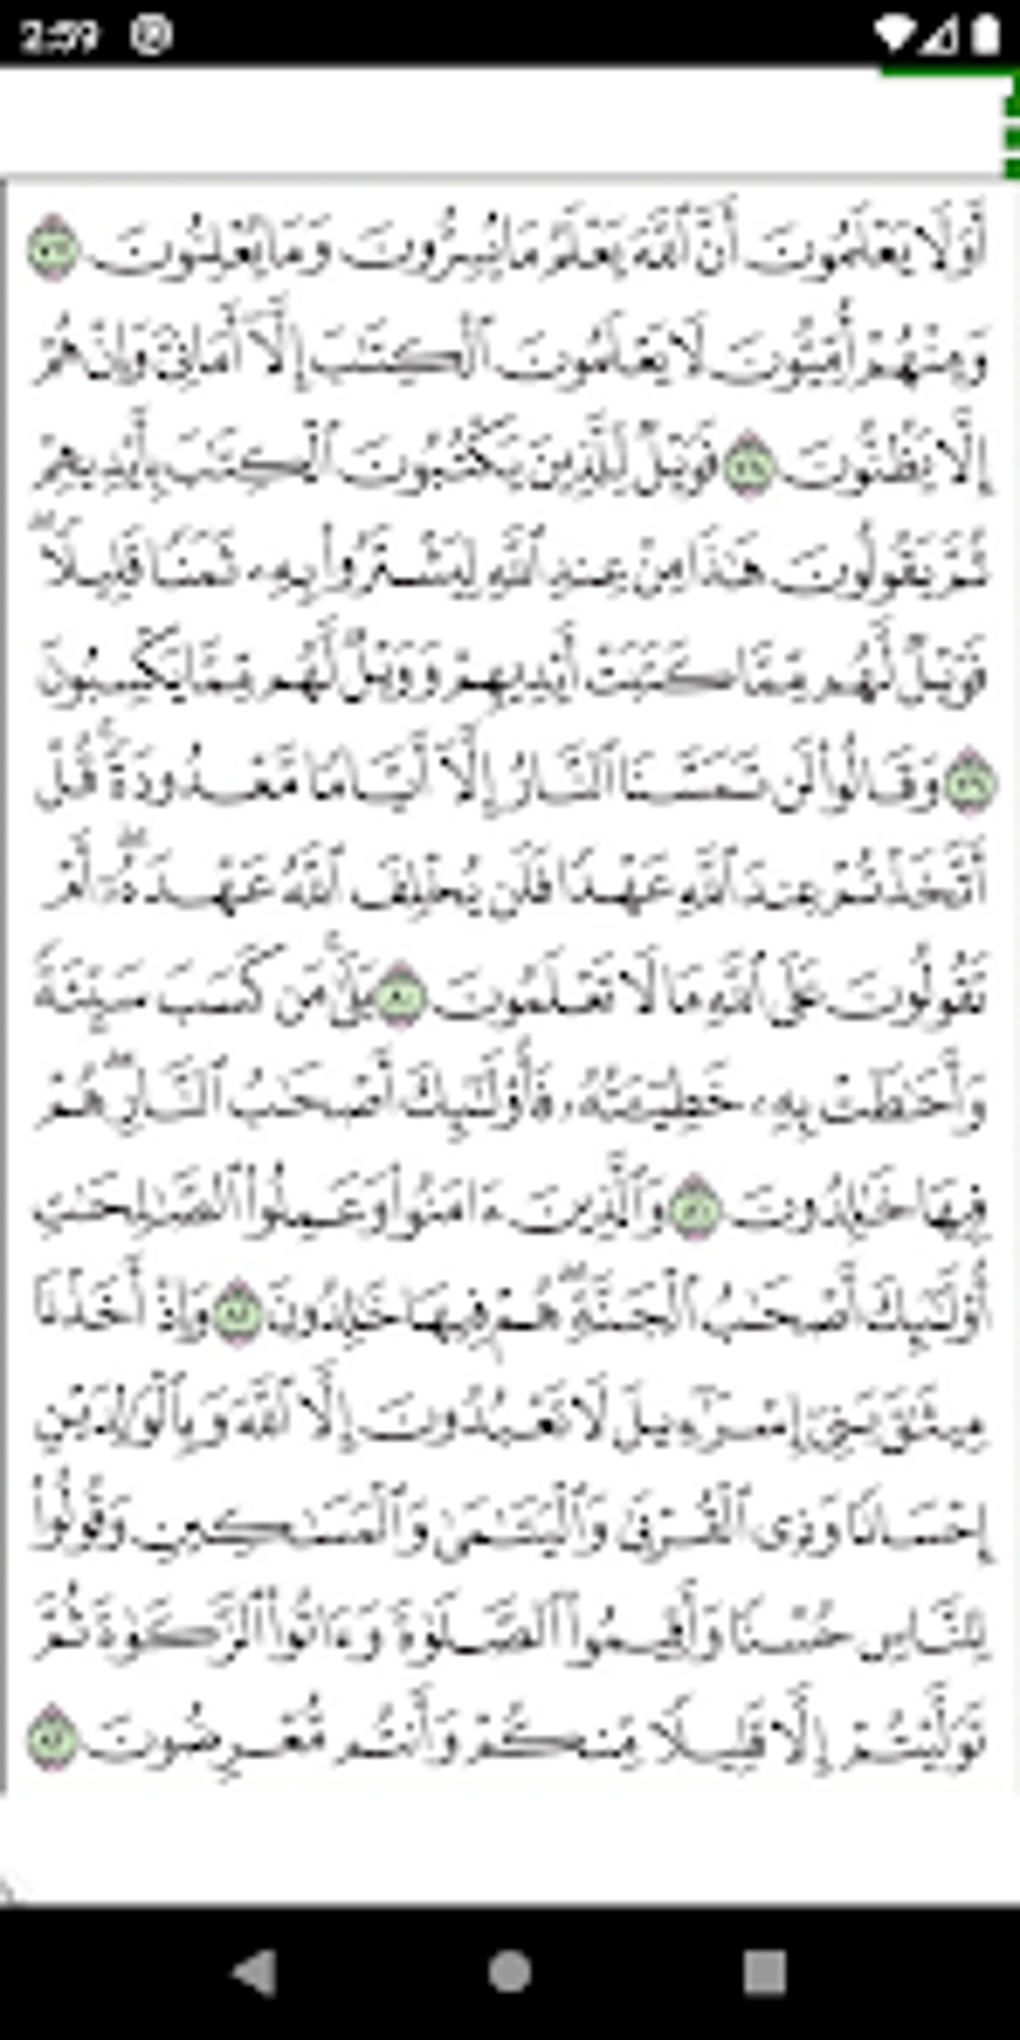 2:59
أَوَلَا يَعْلَمُونَ أَنَّ ٱللَّهَ يَعْلَمُ مَا يُسِرُّونَ وَمَا يُعْلِنُونَ ٧٧
وَمِنْهُمْ أُمِّيُّونَ لَا يَعْلَمُونَ ٱلْكِتَٰبَ إِلَّآ أَمَانِىَّ وَإِنْ هُمْ
إِلَّا يَظُنُّونَ ٧٨ فَوَيْلٌ لِّلَّذِينَ يَكْتُبُونَ ٱلْكِتَٰبَ بِأَيْدِيهِمْ
ثُمَّ يَقُولُونَ هَٰذَا مِنْ عِندِ ٱللَّهِ لِيَشْتَرُوا۟ بِهِۦ ثَمَنًا قَلِيلًا ۖ
فَوَيْلٌ لَّهُم مِّمَّا كَتَبَتْ أَيْدِيهِمْ وَوَيْلٌ لَّهُم مِّمَّا يَكْسِبُونَ
٧٩ وَقَالُوا۟ لَن تَمَسَّنَا ٱلنَّارُ إِلَّآ أَيَّامًا مَّعْدُودَةً ۚ قُلْ
أَتَّخَذْتُمْ عِندَ ٱللَّهِ عَهْدًا فَلَن يُخْلِفَ ٱللَّهُ عَهْدَهُۥٓ ۖ أَمْ
تَقُولُونَ عَلَى ٱللَّهِ مَا لَا تَعْلَمُونَ ٨٠ بَلَىٰ مَن كَسَبَ سَيِّئَةً
وَأَحَٰطَتْ بِهِۦ خَطِيٓـَٔتُهُۥ فَأُو۟لَٰٓئِكَ أَصْحَٰبُ ٱلنَّارِ ۖ هُمْ
فِيهَا خَٰلِدُونَ ٨١ وَٱلَّذِينَ ءَامَنُوا۟ وَعَمِلُوا۟ ٱلصَّٰلِحَٰتِ
أُو۟لَٰٓئِكَ أَصْحَٰبُ ٱلْجَنَّةِ ۖ هُمْ فِيهَا خَٰلِدُونَ ٨٢ وَإِذْ أَخَذْنَا
مِيثَٰقَ بَنِىٓ إِسْرَٰٓءِيلَ لَا تَعْبُدُونَ إِلَّا ٱللَّهَ وَبِٱلْوَٰلِدَيْنِ
إِحْسَانًا وَذِى ٱلْقُرْبَىٰ وَٱلْيَتَٰمَىٰ وَٱلْمَسَٰكِينِ وَقُولُوا۟
لِلنَّاسِ حُسْنًا وَأَقِيمُوا۟ ٱلصَّلَوٰةَ وَءَاتُوا۟ ٱلزَّكَوٰةَ ثُمَّ
تَوَلَّيْتُمْ إِلَّا قَلِيلًا مِّنكُمْ وَأَنتُم مُّعْرِضُونَ ٨٣